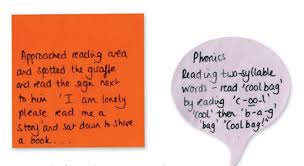 Approached reading area
and spotted the giraffe
and read the sign next
to him 'I am lonely
please read me a
story and sat down to share
a book....
Phonics
Reading two-syllable
words - read 'cool bag'
by reading 'c-oo-l'
'cool' then 'b-a-g'
'bag' "Cool bag!"